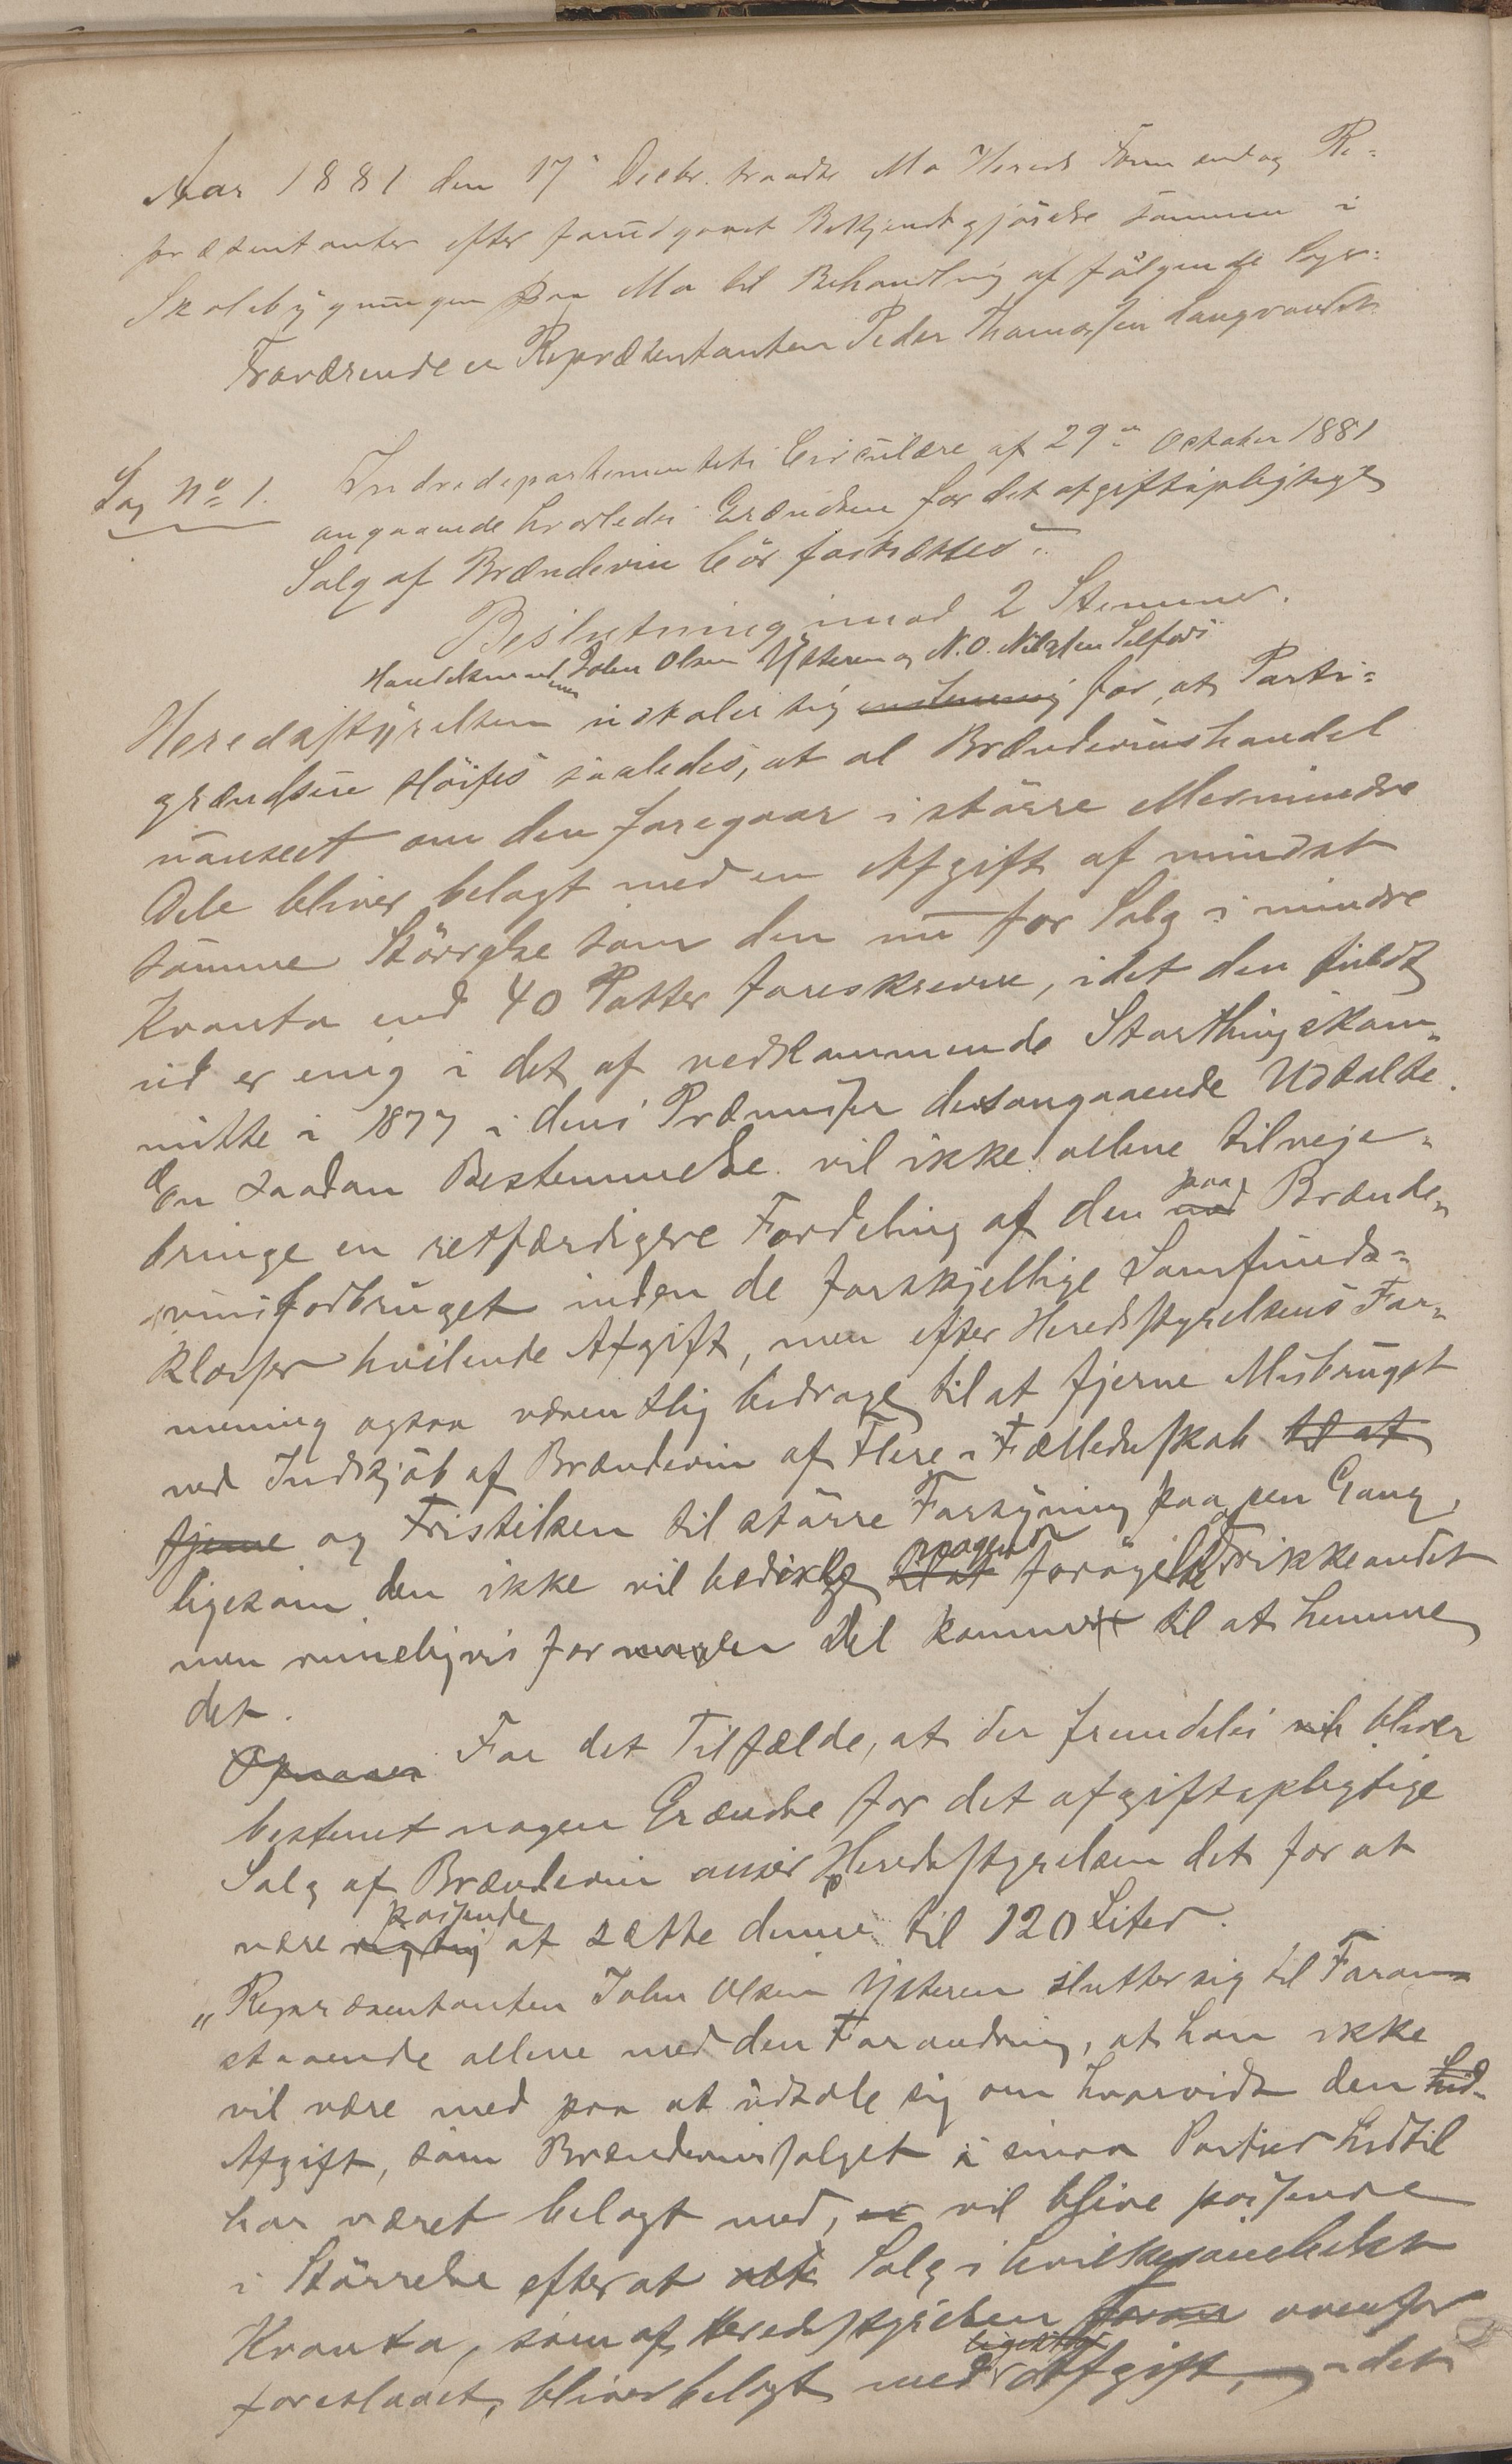 Aar 1881 den 17de Decbr. traadte Mo Hereds Formænd og Re-
præsentanter efter forudgaaet Bekjendtgjørelse sammen i
Skolebygningen paa Mo til Behandling af følgende Sager:
Fraværende er Repræsentanten Peder Thomassen Langvandet
Sag No 1. Indredepartementets Circulære af 29de October 1881
angaaende hvorledes Grændsen for det afgiftspligtige
Salg af Brændeviin bør fastsættes.
Beslutning imod 2 Stemmer.
Handelsmand John Olsen Ysteren og N. O. Nilssen Selfors
Heredsstyrelsen udtaler sig enstemmig for, at Parti-
grændsene sløifes saaledes, at al Brændeviinshandel
uanseet om den foregaar i større eller mindre
Dele bliver belagt med en Afgift af mindst
samme Størrelse som den nu for Salg i mindre
Kvanta end 40 Potter foreskrevne, idet den fuldt
ud er enig i det af vedkommende Storthingskom-
mitte i 1877 i dens Præmisser desangaaende Udtalte.
En saadan Bestemmelse vil ikke allene tilveje-
bringe en retfærdigere Fordeling af den paa ved Brænde-
vinsforbruget inden de forskjellige Samfunds-
klasser hvilende Afgift, men efter Heredsstyrelsens For-
mening ogsaa væsentlig bidrage til at fjerne Misbruget
ved Indkjøb af Brændeviin af Flere i Fælledsskab til at
fjerne og Fristelsen til større Forsyning paa en Gang,
ligesom den ikke vil bevirke til at noget forøgelse Drikkeondet
men rimeligvis for en Del komme til at hemme
det.
For det Tilfælde, at der fremdeles vil bliver
bestemt nogen Grændse for det afgiftspligtige
Salg af Brændeviin anser Heredsstyrelsen det for at
være rigtig passende at sætte denne til 120 Liter.
"Repræsentanten John Olsen Ysteren slutter sig til Foran-
staaende allene med den Forandring, at han ikke
vil være med paa at udtale sig om hvorvidt den hid-
Afgift, som Brændeviinssalget i smaa Partier hidtil
har været belagt med, er vil blive passende
i Størrelse efter at alt Salg i hvilketsomhelst
Kvanta, som af Heredsstyrelsen foran ovenfor
foreslaaet, bliver belagt med ligelig Afgift, idet